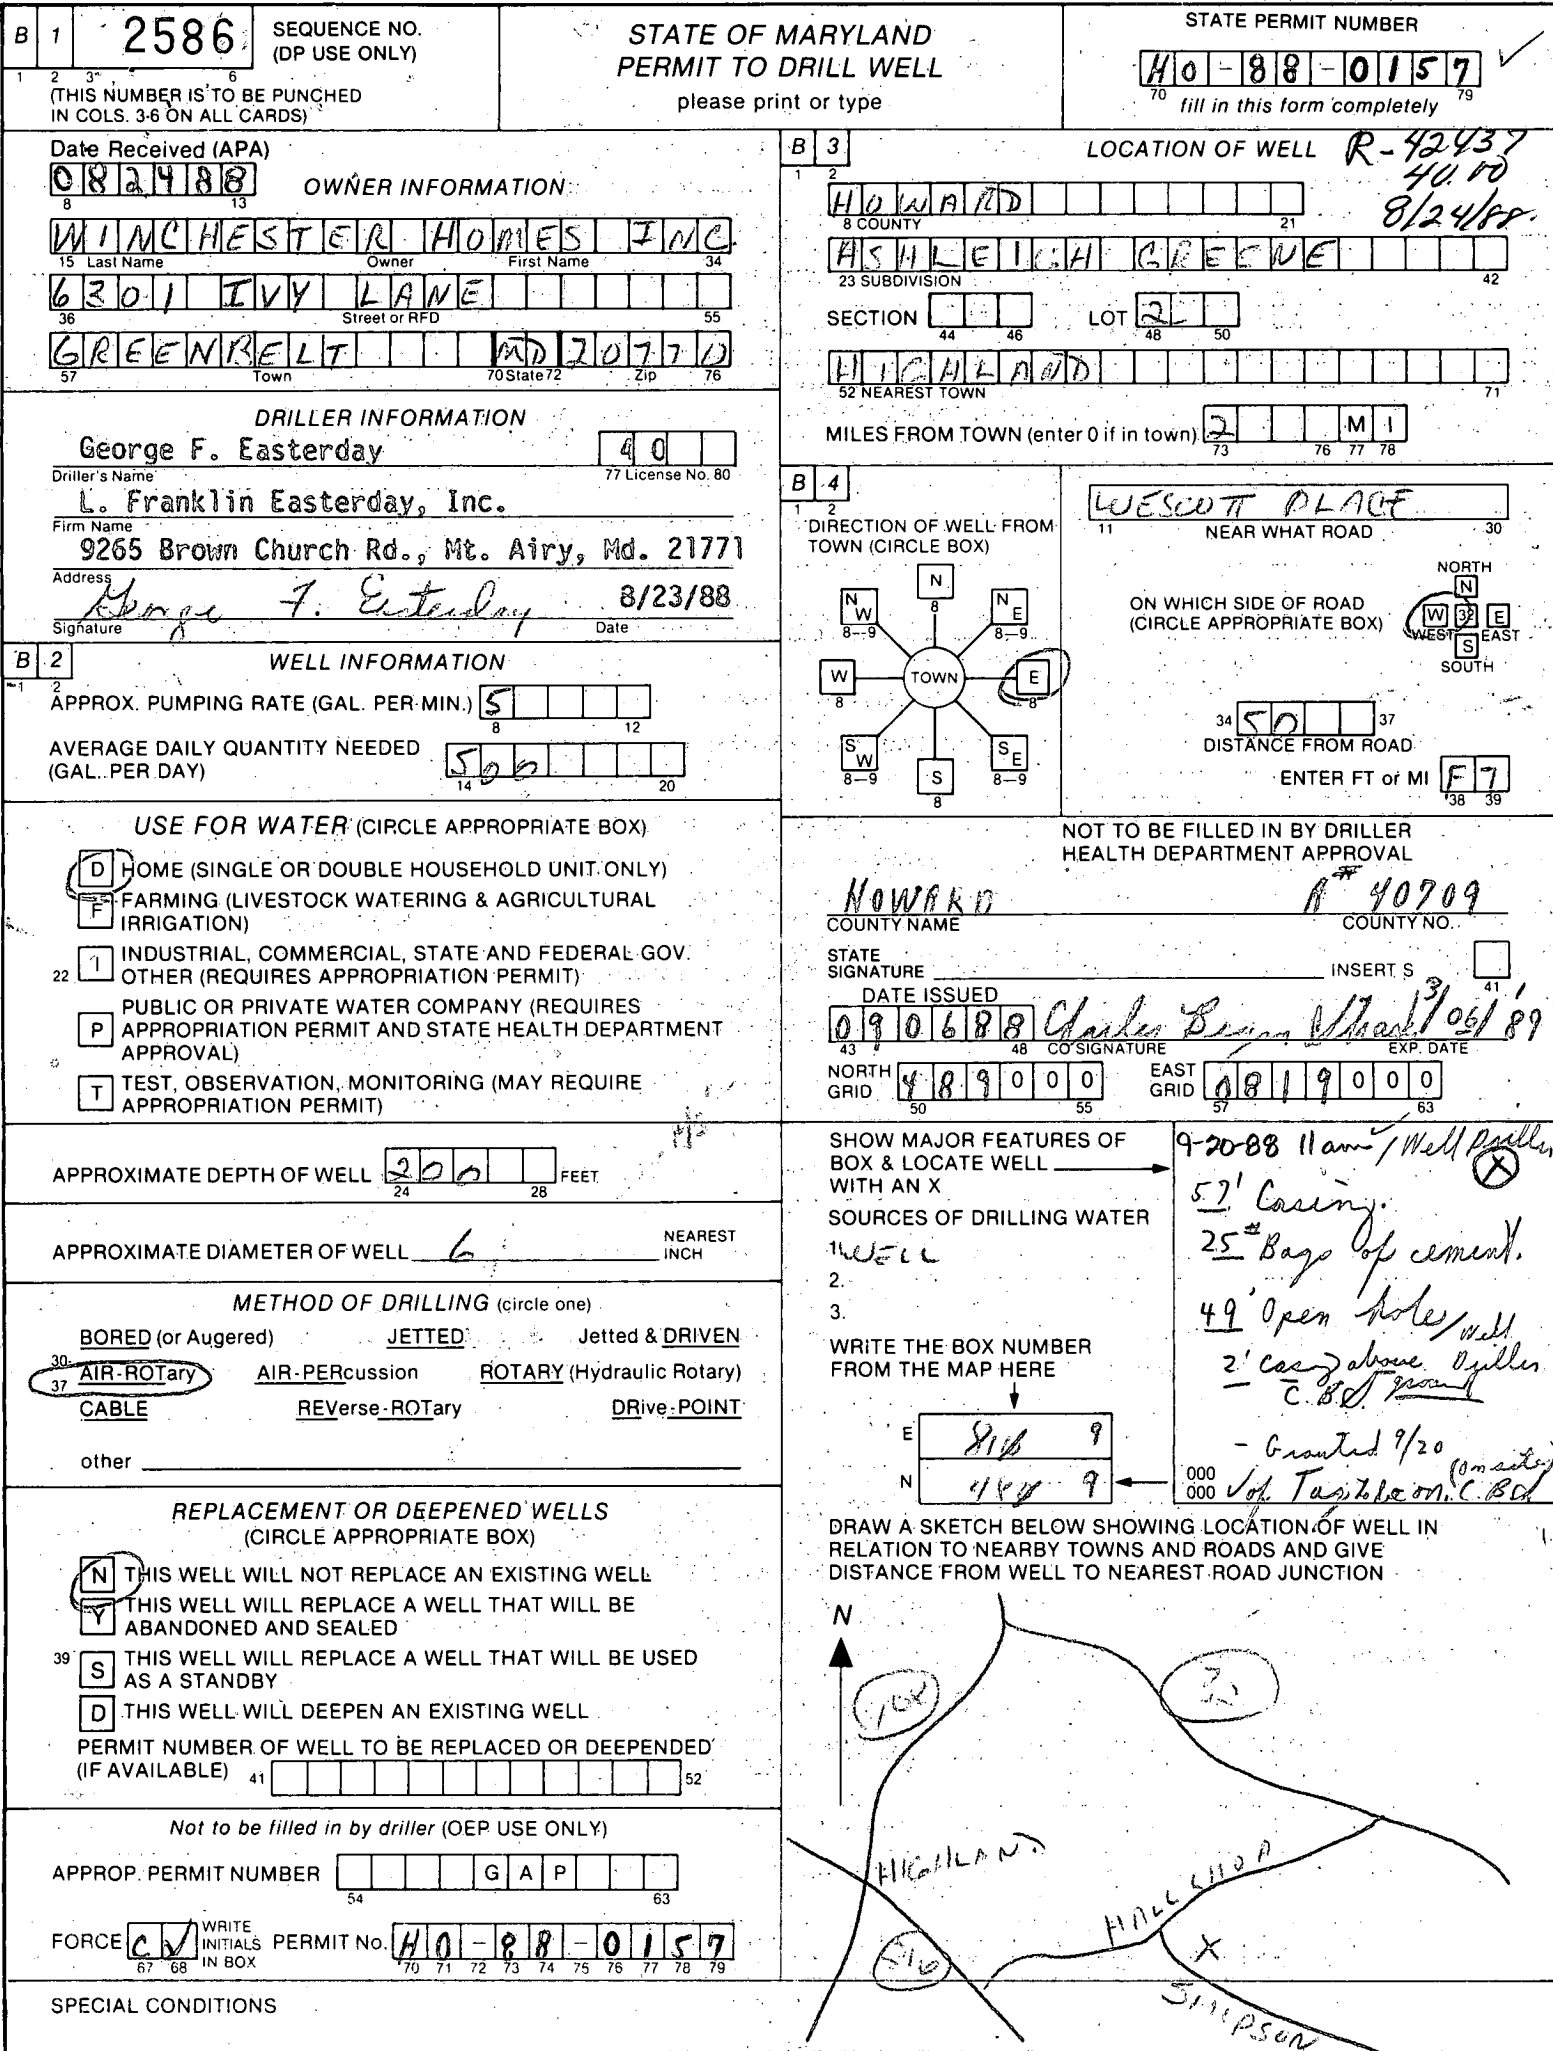 B 1 2586 SEQUENCE NO.
(DP USE ONLY)
1 2 3 6
(THIS NUMBER IS TO BE PUNCHED
IN COLS. 3-6 ON ALL CARDS)
STATE OF MARYLAND
PERMIT TO DRILL WELL
please print or type
STATE PERMIT NUMBER
HO-88-0157
70 79
fill in this form completely
Date Received (APA)
082488
8 13
OWNER INFORMATION
WINCHESTER HOMES INC
15 Last Name Owner First Name 34
6301 IVY LANE
36 Street or RFD 55
GREENBELT MD 20770
57 Town 70 State 72 Zip 76
DRILLER INFORMATION
George F. Easterday 40
Driller's Name 77 License No. 80
L. Franklin Easterday, Inc.
Firm Name
9265 Brown Church Rd., Mt. Airy, Md. 21771
Address
George F. Easterday 8/23/88
Signature Date
B 2 WELL INFORMATION
1 2
APPROX. PUMPING RATE (GAL. PER MIN.) 5
8 12
AVERAGE DAILY QUANTITY NEEDED
(GAL. PER DAY) 500
14 20
USE FOR WATER (CIRCLE APPROPRIATE BOX)
D HOME (SINGLE OR DOUBLE HOUSEHOLD UNIT ONLY)
F FARMING (LIVESTOCK WATERING & AGRICULTURAL
IRRIGATION)
22 I INDUSTRIAL, COMMERCIAL, STATE AND FEDERAL GOV.
OTHER (REQUIRES APPROPRIATION PERMIT)
P PUBLIC OR PRIVATE WATER COMPANY (REQUIRES
APPROPRIATION PERMIT AND STATE HEALTH DEPARTMENT
APPROVAL)
T TEST, OBSERVATION, MONITORING (MAY REQUIRE
APPROPRIATION PERMIT)
APPROXIMATE DEPTH OF WELL 200 FEET
24 28
APPROXIMATE DIAMETER OF WELL 6 NEAREST
INCH
METHOD OF DRILLING (circle one)
BORED (or Augered) JETTED Jetted & DRIVEN
30 37 AIR-ROTary AIR-PERcussion ROTARY (Hydraulic Rotary)
CABLE REVerse-ROTary DRive-POINT
other
REPLACEMENT OR DEEPENED WELLS
(CIRCLE APPROPRIATE BOX)
N THIS WELL WILL NOT REPLACE AN EXISTING WELL
Y THIS WELL WILL REPLACE A WELL THAT WILL BE
ABANDONED AND SEALED
39 S THIS WELL WILL REPLACE A WELL THAT WILL BE USED
AS A STANDBY
D THIS WELL WILL DEEPEN AN EXISTING WELL
PERMIT NUMBER OF WELL TO BE REPLACED OR DEEPENDED
(IF AVAILABLE) 41 52
Not to be filled in by driller (OEP USE ONLY)
APPROP. PERMIT NUMBER GAP
54 63
FORCE WRITE
INITIALS
IN BOX PERMIT No. HO-88-0157
67 68 70 71 72 73 74 75 76 77 78 79
SPECIAL CONDITIONS
B 3 LOCATION OF WELL R-42437
1 2 40.00
8/24/88
HOWARD
8 COUNTY 21
ASHLEIGH GREENE
23 SUBDIVISION 42
SECTION LOT 2
44 46 48 50
HIGHLAND
52 NEAREST TOWN 71
MILES FROM TOWN (enter 0 if in town) 2 MI
73 76 77 78
B 4 WESCOTT PLACE
1 2 11 NEAR WHAT ROAD 30
DIRECTION OF WELL FROM
TOWN (CIRCLE BOX)
N 8
NW 8-9
NE 8-9
W 8
TOWN
E 8
SW 8-9
SE 8-9
S 8
ON WHICH SIDE OF ROAD
(CIRCLE APPROPRIATE BOX)
NORTH
N
W 32 E
WEST EAST
S
SOUTH
34 50 37
DISTANCE FROM ROAD
ENTER FT or MI FT
38 39
NOT TO BE FILLED IN BY DRILLER
HEALTH DEPARTMENT APPROVAL
HOWARD A# 40709
COUNTY NAME COUNTY NO.
STATE
SIGNATURE INSERT S
41
DATE ISSUED
090688 3/06/89
43 48 CO SIGNATURE EXP. DATE
NORTH
GRID 489000
50 55
EAST
GRID 0819000
57 63
SHOW MAJOR FEATURES OF
BOX & LOCATE WELL
WITH AN X
SOURCES OF DRILLING WATER
1. WELL
2.
3.
WRITE THE BOX NUMBER
FROM THE MAP HERE
E 9
N 9
000
000
9-20-88 11am / Well Driller
X
57' Casing.
25# Bags of cement.
49' Open hole / Well
2' casing above Driller
ground
- Grouted 9/20
DRAW A SKETCH BELOW SHOWING LOCATION OF WELL IN
RELATION TO NEARBY TOWNS AND ROADS AND GIVE
DISTANCE FROM WELL TO NEAREST ROAD JUNCTION
N
108
32
HIGHLAND
HALL SHOP
216
X
SIMPSON